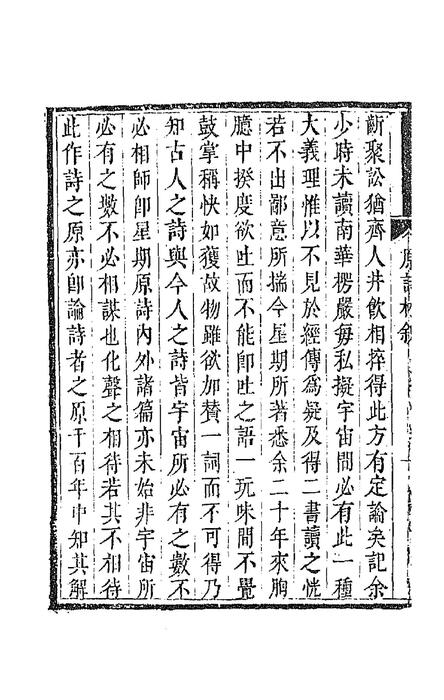 斷聚訟猶齊人井飲相捽得此方有定論矣記余
少時未讀南華楞嚴每私擬宇宙間必有此一種
大義理惟以不見於經傳為疑及得二書讀之恍
若不出鄙意所揣今星期所著悉余二十年來胸
臆中揆度欲吐而不能卽吐之語一玩味間不覺
鼓掌稱快如獲故物雖欲加贊一詞而不可得乃
知古人之詩與今人之詩皆宇宙所必有之數不
必相師卽星期原詩內外諸篇亦未始非宇宙所
必有之數不必相謀也化聲之相待若其不相待
此作詩之原亦卽論詩者之原千百年中知其解